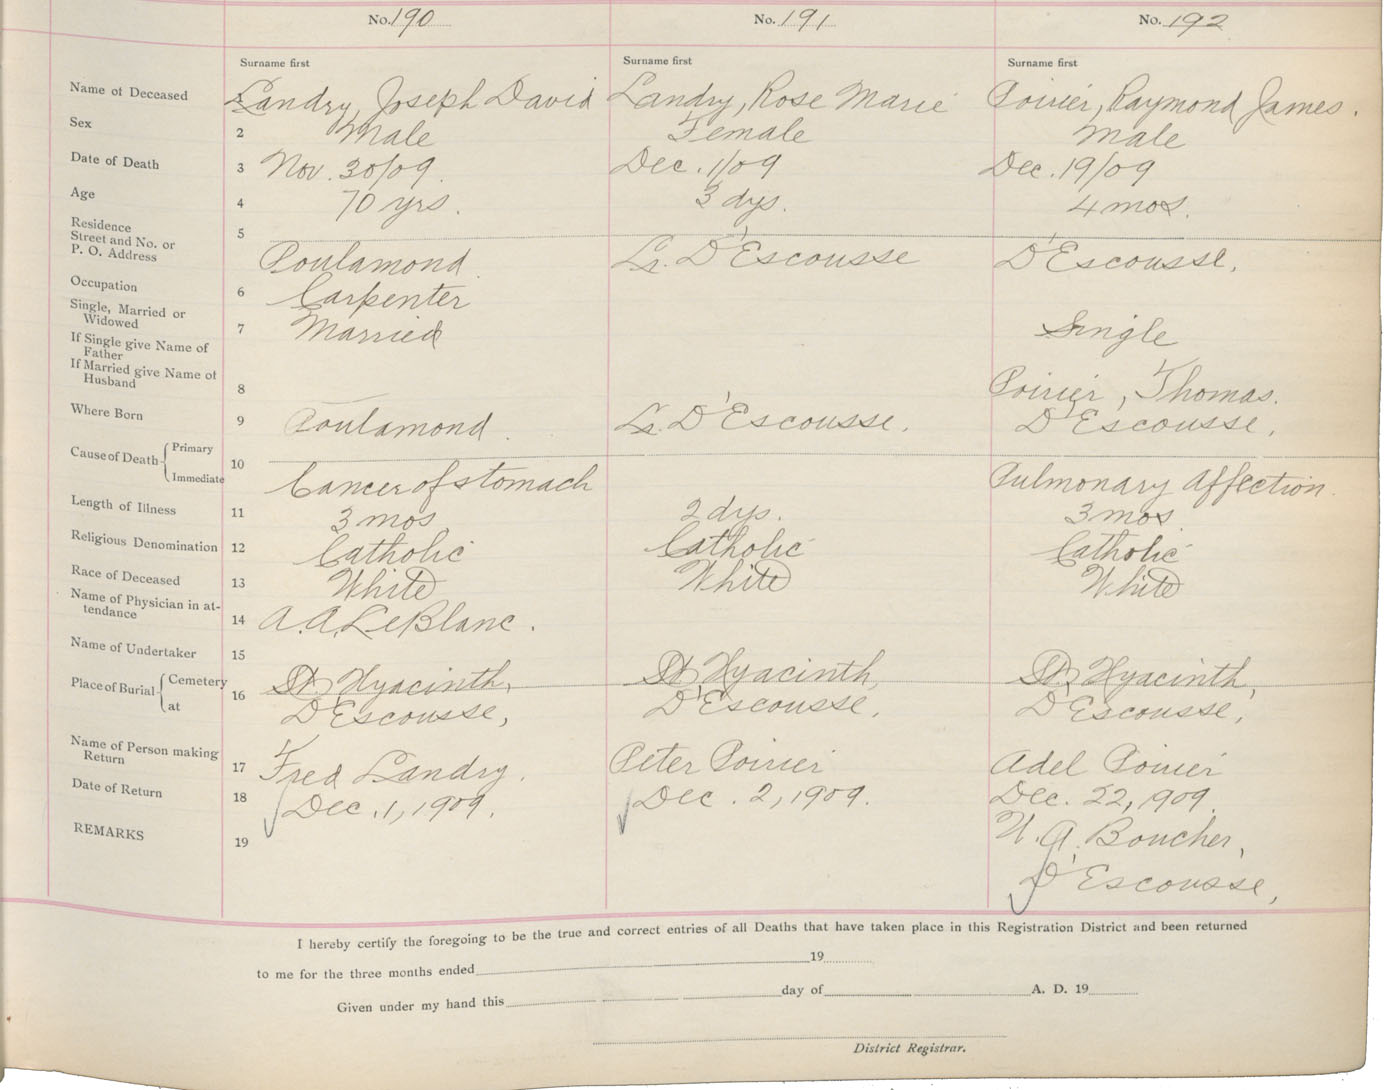 No. 190 No. 191 No. 192
Surname first Surname first Surname first
Name of Deceased 1 Landry, Joseph David Landry, Rose Marie Poirier, Raymond James.
Sex 2 Male Female Male
Date of Death 3 Nov. 30/09. Dec. 1/09 Dec. 19/09
Age 4 70 yrs. 3 dys. 4 mos.
Residence
Street and No. or
P. O. Address 5 Poulamond. Lr. D'Escousse D'Escousse,
Occupation 6 Carpenter
Single, Married or
Widowed 7 Married Single
If Single give Name of
Father
If Married give Name of
Husband 8 Poirier, Thomas.
Where Born 9 Poulamond. Lr. D'Escousse. D'Escousse,
Cause of Death Primary
10
Immediate Cancer of stomach Pulmonary Affection.
Length of Illness 11 3 mos 2 dys. 3 mos.
Religious Denomination 12 Catholic Catholic Catholic
Race of Deceased 13 White White White
Name of Physician in at-
tendance 14 A. A. LeBlanc.
Name of Undertaker 15
Place of Burial Cemetery 16 St. Hyacinth, St. Hyacinth, St. Hyacinth,
at D'Escousse, D'Escousse, D'Escousse,
Name of Person making
Return 17 Fred Landry. Peter Poirier Adel Poirier
Date of Return 18 Dec. 1, 1909. Dec. 2, 1909. Dec. 22, 1909.
REMARKS 19 A. Boucher,
D'Escousse,
I hereby certify the foregoing to be the true and correct entries of all Deaths that have taken place in this Registration District and been returned
to me for the three months ended 19
Given under my hand this day of A. D. 19
District Registrar.